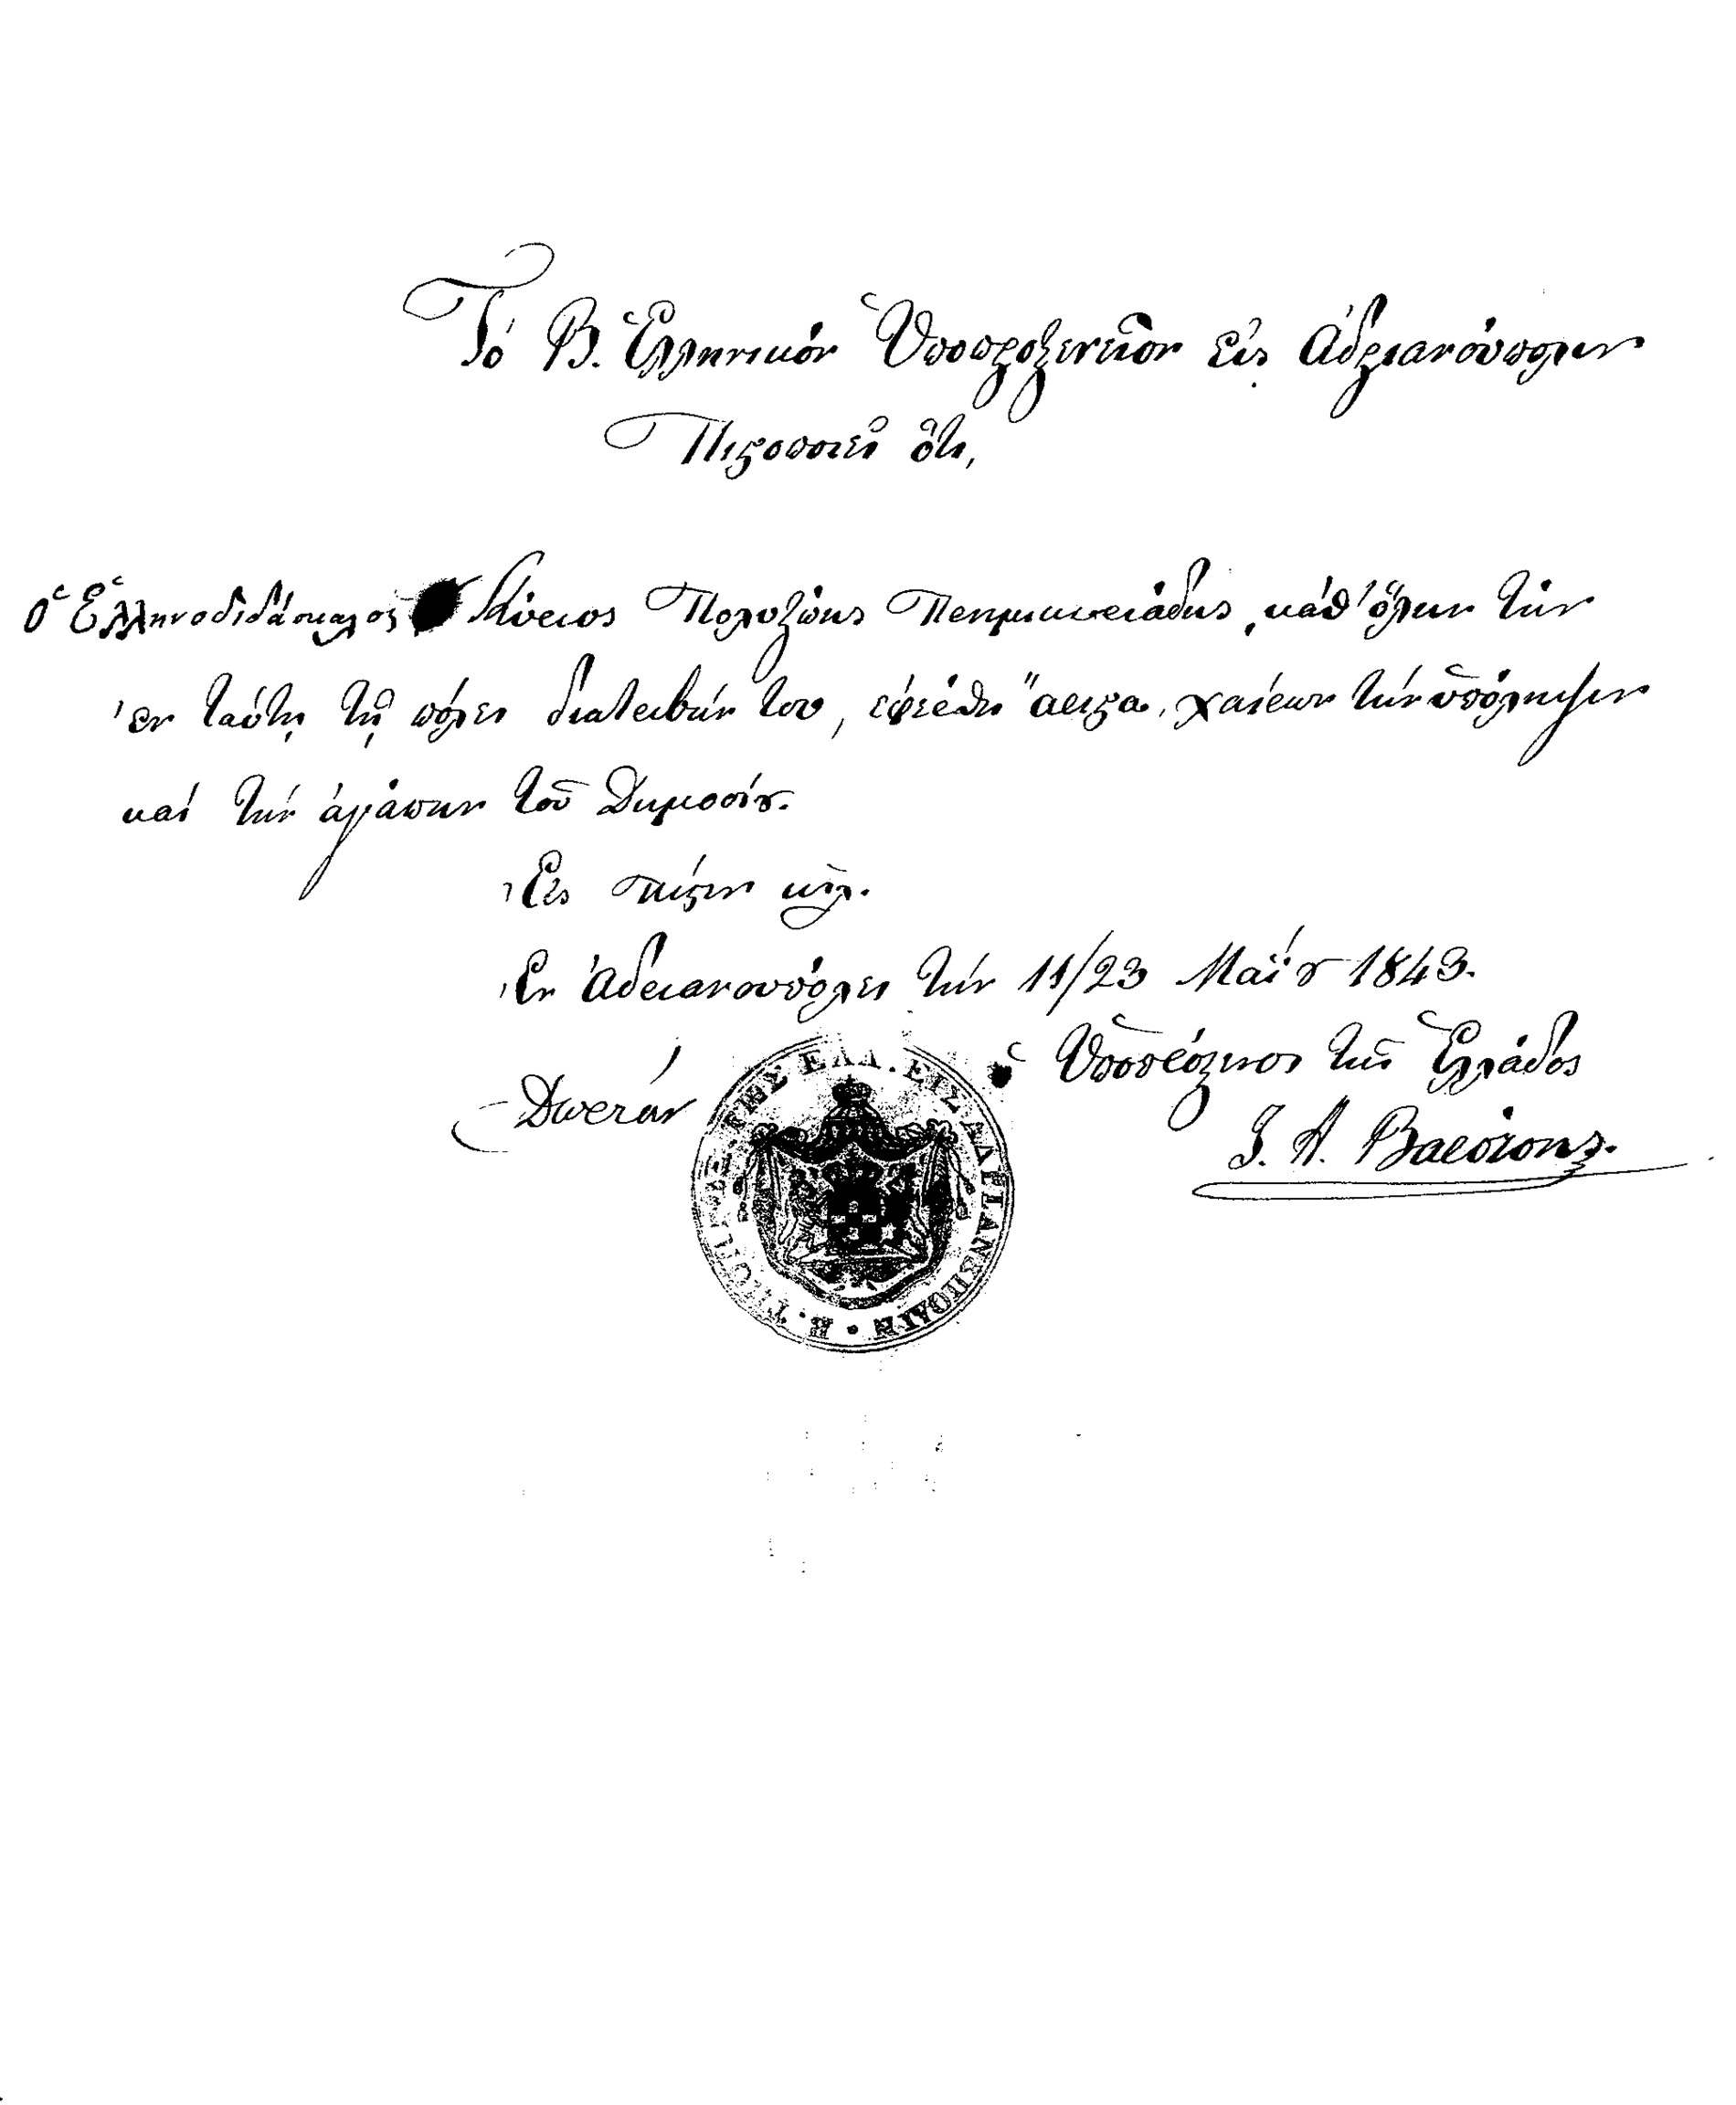 Τό Β. Ἑλληνικόν Ὑποπροξενεῖον εἰς Ἀδριανούπολιν
Πιϛοποιεῖ ὅτι,
ὁ Ἑλληνοδιδάσκαλος Κύριος Πολυζώης καθ' ὅλην τήν
ἐν ταύτῃ τῇ πόλει διατριβήν του, ἐφέρθη ἄριϛα, χαίρων τήν ὑπόληψιν
καί τήν ἀγάπην τοῦ Δημοσίȣ.
Εἰς πίϛιν κτλ.
Ἐν Ἀδριανουπόλει τήν 11/23 Μαΐȣ 1843.
ὁ Ὑποπρόξενος τῆς Ἑλλάδος
Δωρεάν
ΤΗΣ ΕΛΛ. ΕΙΣ ΑΔΡΙΑΝȣΠΟΛΙΝ